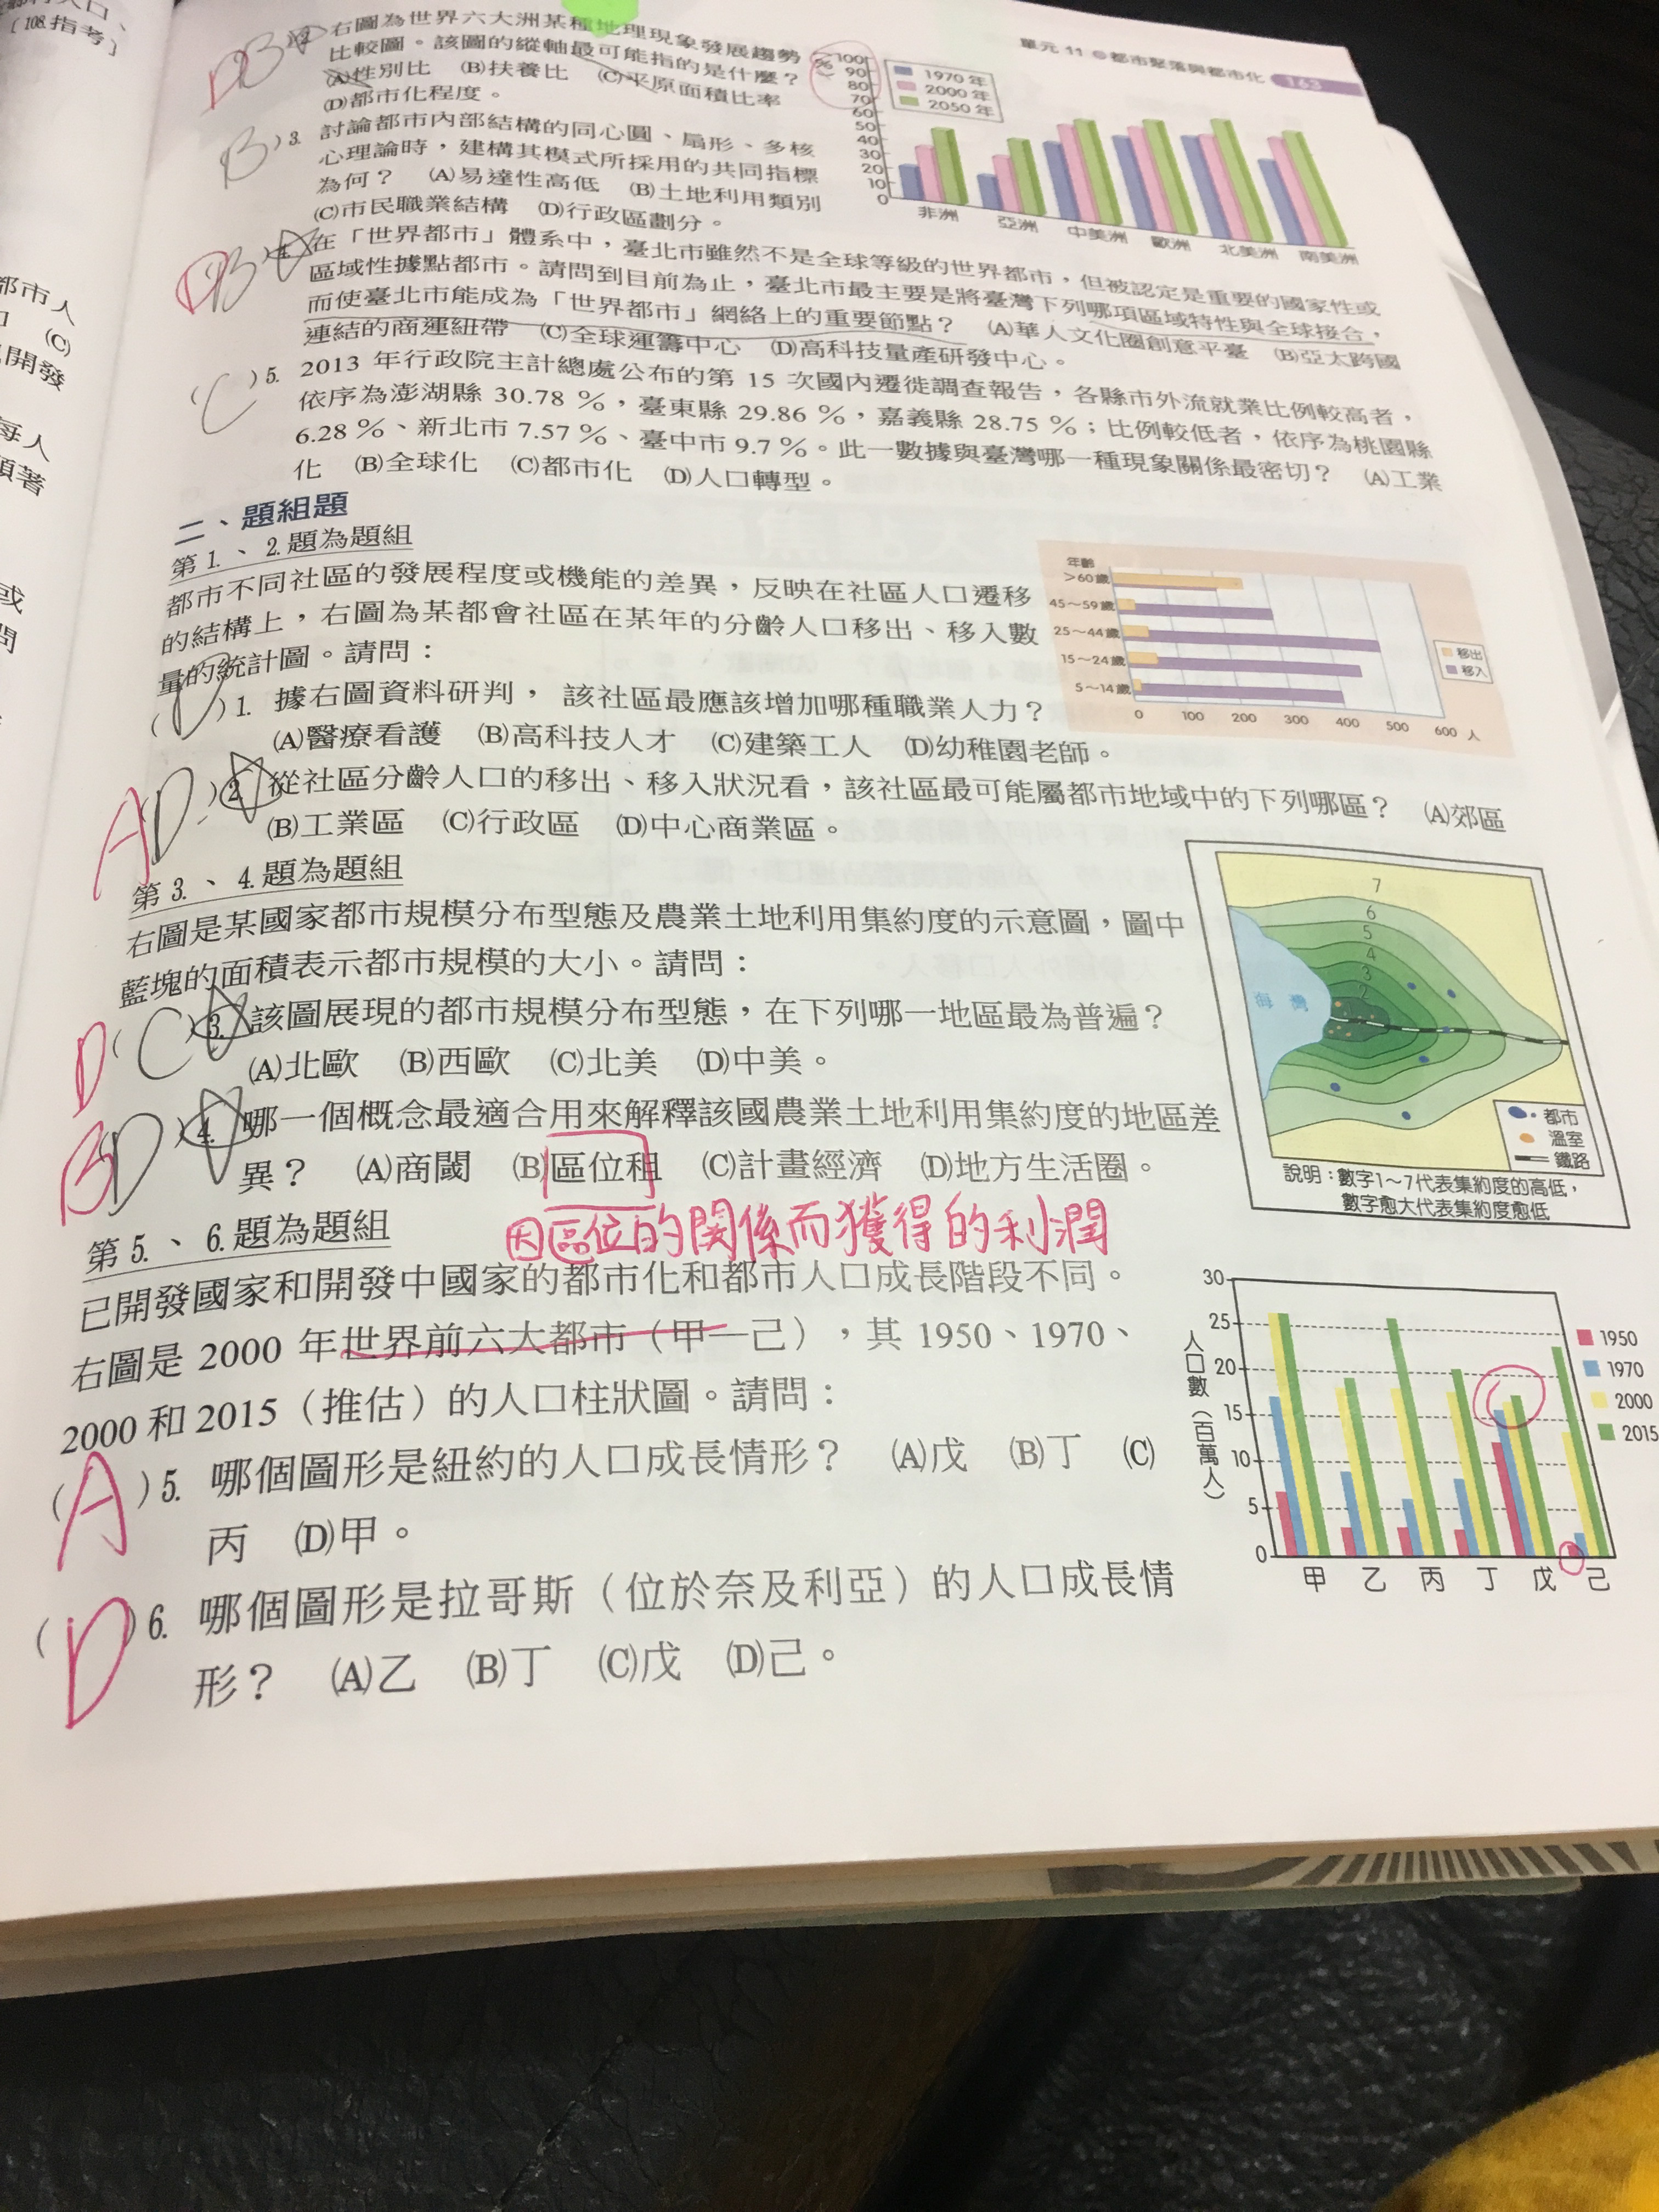 〔108.指考〕
都市人
(C)
開發
每人
顯著
或
問
單元 11 都市聚落與都市化 163
DB 2. 右圖為世界六大洲某種地理現象發展趨勢
比較圖。該圖的縱軸最可能指的是什麼？
(A)性別比 (B)扶養比 (C)平原面積比率
(D)都市化程度。
(%)
100
90
80
70
60
50
40
30
20
10
0
1970 年
2000 年
2050 年
非洲 亞洲 中美洲 歐洲 北美洲 南美洲
B )3. 討論都市內部結構的同心圓、扇形、多核
心理論時，建構其模式所採用的共同指標
為何？ (A)易達性高低 (B)土地利用類別
(C)市民職業結構 (D)行政區劃分。
DB )4. 在「世界都市」體系中，臺北市雖然不是全球等級的世界都市，但被認定是重要的國家性或
區域性據點都市。請問到目前為止，臺北市最主要是將臺灣下列哪項區域特性與全球接合，
而使臺北市能成為「世界都市」網絡上的重要節點？ (A)華人文化圈創意平臺 (B)亞太跨國
連結的商運紐帶 (C)全球運籌中心 (D)高科技量產研發中心。
C )5. 2013 年行政院主計總處公布的第 15 次國內遷徙調查報告，各縣市外流就業比例較高者，
依序為澎湖縣 30.78 %，臺東縣 29.86 %，嘉義縣 28.75 %；比例較低者，依序為桃園縣
6.28 %、新北市 7.57 %、臺中市 9.7 %。此一數據與臺灣哪一種現象關係最密切？ (A)工業
化 (B)全球化 (C)都市化 (D)人口轉型。
二、題組題
第 1.、2.題為題組
都市不同社區的發展程度或機能的差異，反映在社區人口遷移
的結構上，右圖為某都會社區在某年的分齡人口移出、移入數
量的統計圖。請問：
年齡
>60歲
45～59歲
25～44歲
15～24歲
5～14歲
0 100 200 300 400 500 600 人
移出
移入
( D )1. 據右圖資料研判， 該社區最應該增加哪種職業人力？
(A)醫療看護 (B)高科技人才 (C)建築工人 (D)幼稚園老師。
A D )2. 從社區分齡人口的移出、移入狀況看，該社區最可能屬都市地域中的下列哪區？ (A)郊區
(B)工業區 (C)行政區 (D)中心商業區。
第 3.、4.題為題組
右圖是某國家都市規模分布型態及農業土地利用集約度的示意圖，圖中
藍塊的面積表示都市規模的大小。請問：
D ( C )3. 該圖展現的都市規模分布型態，在下列哪一地區最為普遍？
(A)北歐 (B)西歐 (C)北美 (D)中美。
B D )4. 哪一個概念最適合用來解釋該國農業土地利用集約度的地區差
異？ (A)商閾 (B)區位租 (C)計畫經濟 (D)地方生活圈。
因區位的關係而獲得的利潤
7
6
5
4
3
2
海灣
都市
溫室
鐵路
說明：數字1～7代表集約度的高低，
數字愈大代表集約度愈低
第 5.、6.題為題組
已開發國家和開發中國家的都市化和都市人口成長階段不同。
右圖是 2000 年世界前六大都市（甲—己），其 1950、1970、
2000 和 2015（推估）的人口柱狀圖。請問：
( A )5. 哪個圖形是紐約的人口成長情形？ (A)戊 (B)丁 (C)
丙 (D)甲。
( D )6. 哪個圖形是拉哥斯（位於奈及利亞）的人口成長情
形？ (A)乙 (B)丁 (C)戊 (D)己。
人口數（百萬人）
30
25
20
15
10
5
0
甲 乙 丙 丁 戊 己
1950
1970
2000
2015